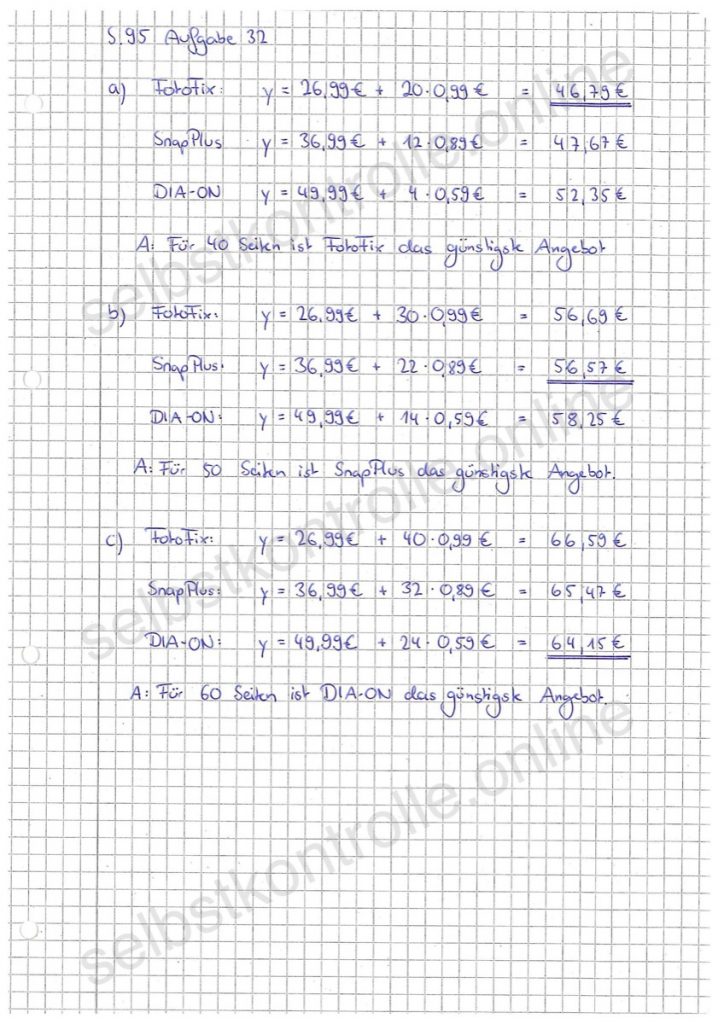 S. 95 Aufgabe 32
a) FotoFix: y = 26,99€ + 20·0,99€ = 46,79€
SnapPlus y = 36,99€ + 12·0,89€ = 47,67€
DIA-ON y = 49,99€ + 4·0,59€ = 52,35€
A: Für 40 Seiten ist FotoFix das günstigste Angebot
b) FotoFix: y = 26,99€ + 30·0,99€ = 56,69€
SnapPlus: y = 36,99€ + 22·0,89€ = 56,57€
DIA-ON: y = 49,99€ + 14·0,59€ = 58,25€
A: Für 50 Seiten ist SnapPlus das günstigste Angebot.
c) FotoFix: y = 26,99€ + 40·0,99€ = 66,59€
SnapPlus: y = 36,99€ + 32·0,89€ = 65,47€
DIA-ON: y = 49,99€ + 24·0,59€ = 64,15€
A: Für 60 Seiten ist DIA-ON das günstigste Angebot.
selbstkontrolle.online
selbstkontrolle.online
selbstkontrolle.online